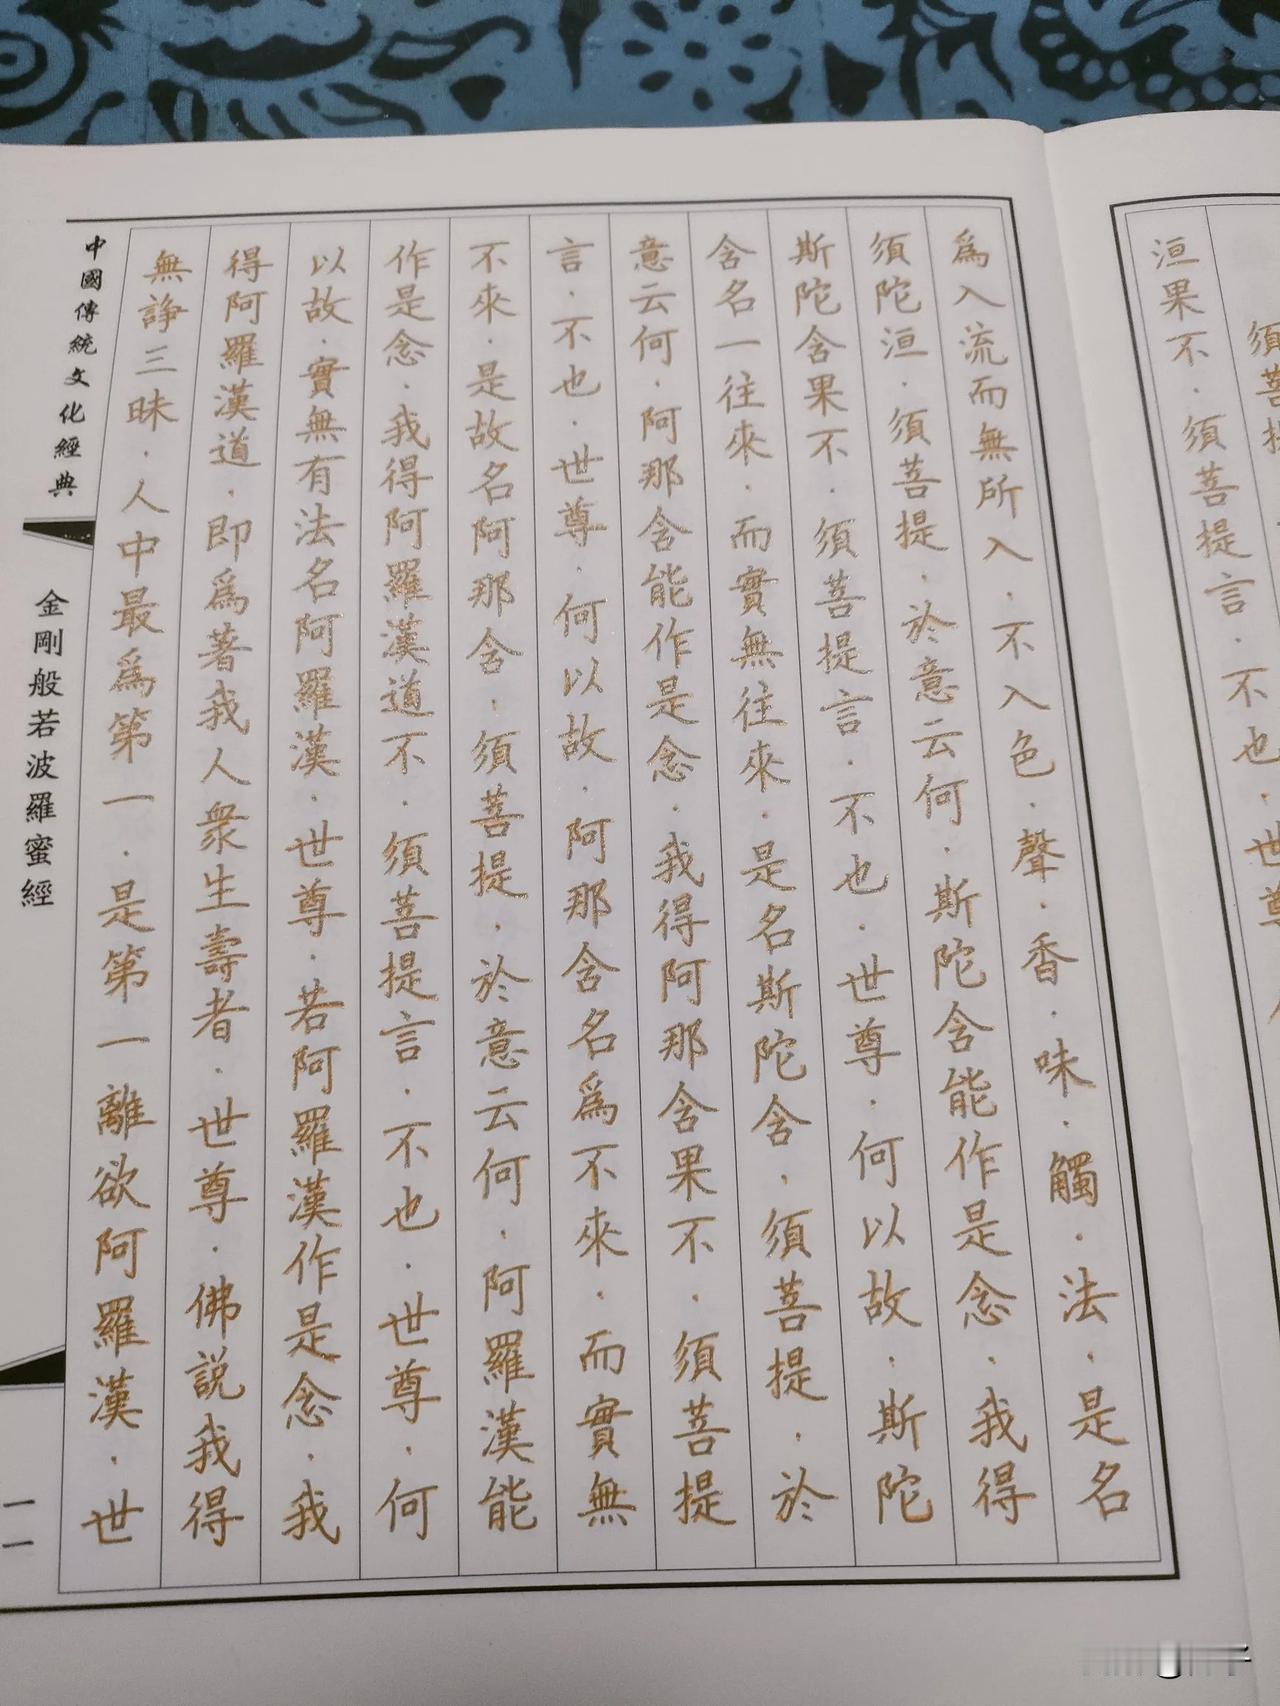 須菩提
洹果不．須菩提言．不也．世尊
爲入流而無所入．不入色．聲．香．味．觸．法．是名
須陀洹．須菩提．於意云何．斯陀含能作是念．我得
斯陀含果不．須菩提言．不也．世尊．何以故．斯陀
含名一往來．而實無往來．是名斯陀含．須菩提．於
意云何．阿那含能作是念．我得阿那含果不．須菩提
言．不也．世尊．何以故．阿那含名爲不來．而實無
不來．是故名阿那含．須菩提．於意云何．阿羅漢能
作是念．我得阿羅漢道不．須菩提言．不也．世尊．何
以故．實無有法名阿羅漢．世尊．若阿羅漢作是念．我
得阿羅漢道．即爲著我人衆生壽者．世尊．佛說我得
無諍三昧．人中最爲第一．是第一離欲阿羅漢．世
中國傳統文化經典
金剛般若波羅蜜經
一一